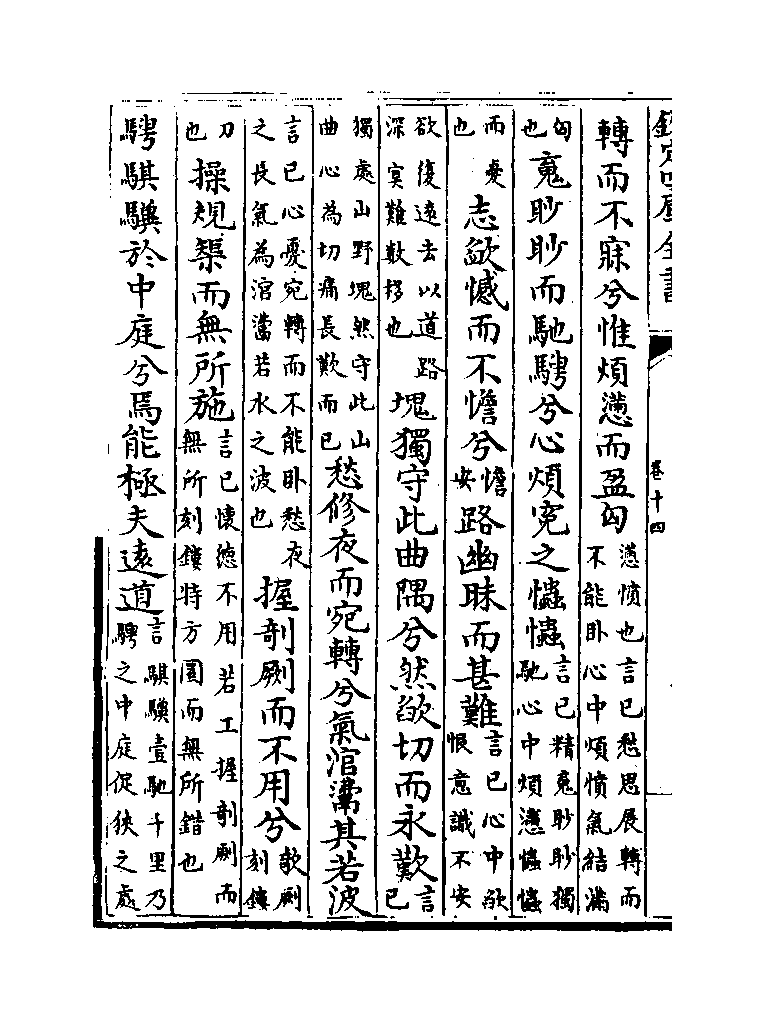 欽定四庫全書
卷十四
轉而不寐兮惟煩懣而盈匈懣憤也言己愁思展轉而不能卧心中煩憤氣結滿
匈也䰟眇眇而馳騁兮心煩寃之𢥞𢥞言己精䰟眇眇獨馳心中煩懣𢥞𢥞
而憂也志欿憾而不憺兮憺安路幽昧而甚難言己心中欿恨意識不安
欲復遠去以道路深冥難數移也塊獨守此曲隅兮然欿切而永歎言己
獨處山野塊然守此山曲心為切痛長歎而已愁修夜而宛轉兮氣涫其若波
言己心憂宛轉而不能卧愁夜之長氣為涫若水之波也握剞劂而不用兮欹劂刻鏤
刀也操規榘而無所施言己懷德不用若工握剞劂而無所刻鏤持方圓而無所錯也
騁騏驥於中庭兮焉能極夫遠道言騏驥壹馳千里乃騁之中庭促狹之處